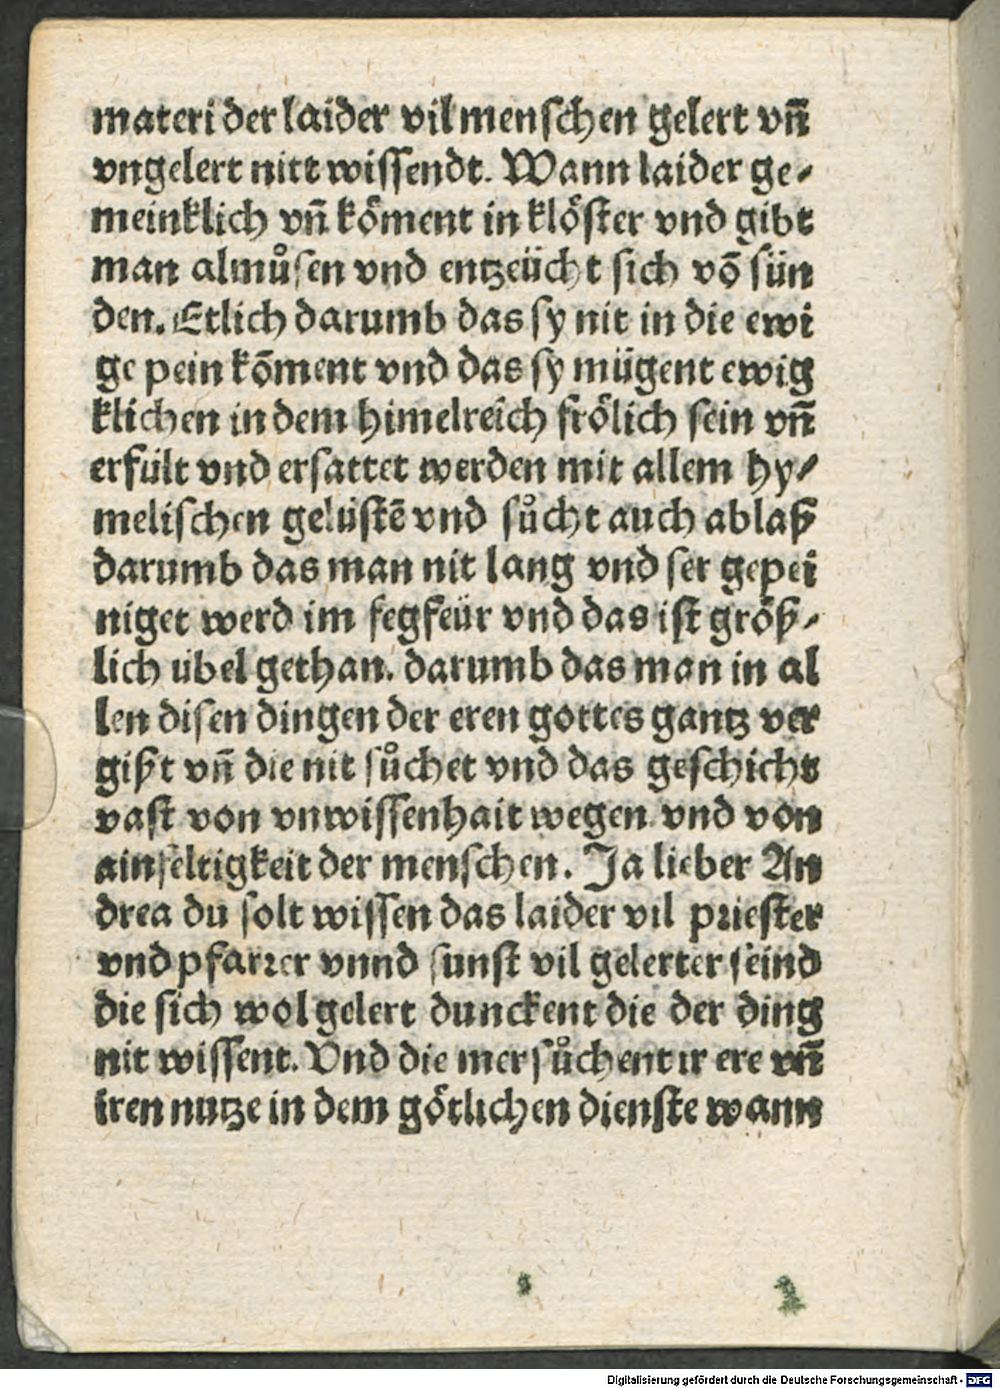 materi der laider vil menschen gelert vn̄
vngelert nitt wissendt. Wann laider ge⸗
meinklich vn̄ kōment in klöster vnd gibt
man almůsen vnd entzeücht sich vō sün
den. Etlich darumb das sy nit in die ewi
ge pein kōment vnd das sy mügent ewig
klichen in dem himelreich frölich sein vn̄
erfült vnd ersattet werden mit allem hy⸗
melischen gelüstē vnd sůcht auch ablaß
darumb das man nit lang vnd ser gepei
niget werd im fegfeür vnd das ist größ⸗
lich übel gethan. darumb das man in al
len disen dingen der eren gottes gantz ver
gißt vn̄ die nit sůchet vnd das geschicht
vast von vnwissenhait wegen vnd von
ainfeltigkeit der menschen. Ja lieber An
drea du solt wissen das laider vil priester
vnd pfarrer vnnd sunst vil gelerter seind
die sich wol gelert dunckent die der ding
nit wissent. Vnd die mer sůchent ir ere vn̄
iren nutze in dem götlichen dienste wann
Digitalisierung gefördert durch die Deutsche Forschungsgemeinschaft - DFG